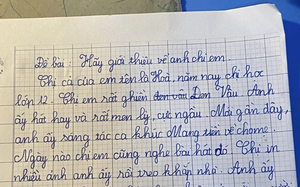 Đề bài: Hãy giới thiệu về anh chị em
Chị cả của em tên là Hoà, năm nay chị học
lớp 12. Chị em rất ghiền đen vâu Đen Vâu. Anh
ấy hát hay và rất men lỳ, cực ngầu. Mới gần đây,
anh ấy sáng tác ca khúc Mang tiền về chome.
Ngày nào chị em cũng nghe bài hát đó. Chị in
nhiều ảnh anh ấy rồi treo khắp nhà. Anh ấy